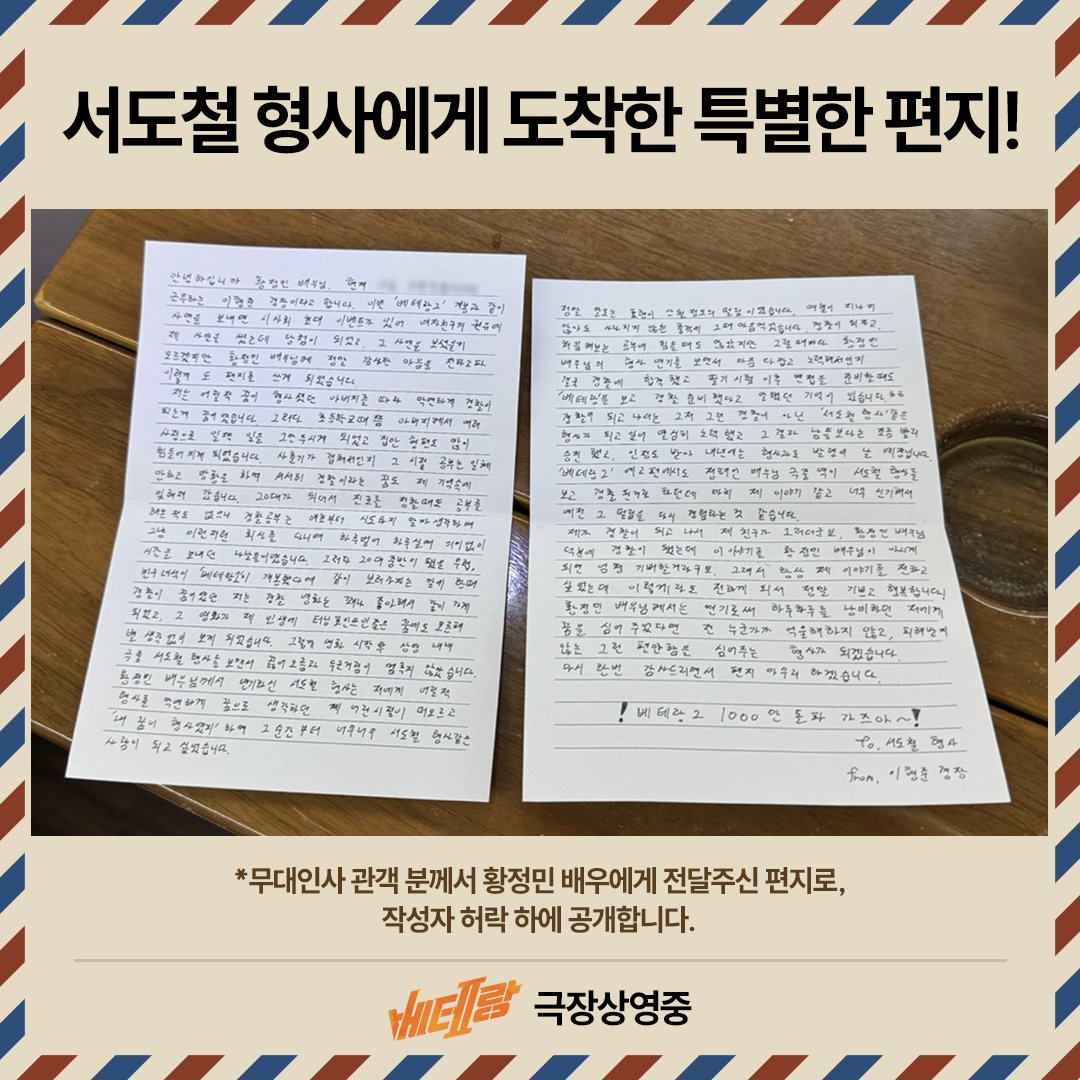 서도철 형사에게 도착한 특별한 편지!
안녕하십니까 황정민 배우님. 현재
근무하는 이형준 경장이라고 합니다. 이번 '베테랑2' 개봉과 같이
사연을 보내면 시사회 초대 이벤트가 있어 여자친구의 권유에
제 사연을 썼는데 당첨이 되었고, 그 사연을 보셨을지
모르겠지만 황정민 배우님께 정말 감사한 마음을 전하고파
이렇게 또 편지를 쓰게 되었습니다.
저는 어릴적 꿈이 형사셨던 아버지를 따라 막연하게 경찰이
되는게 꿈이었습니다. 그러다 초등학교때쯤 아버지께서 여러
사정으로 일찍 일을 그만두시게 되었고 집안 형편도 많이
힘들어지게 되었습니다. 사춘기가 겹쳐서인지 그 시절 공부는 일체
안하고 방황을 하며 서서히 경찰이라는 꿈도 제 기억속에
잊혀져 갔습니다. 20대가 되어서 진로를 정할때도 공부를
해본적도 없으니 경찰공부는 애초부터 시도하지 말자 생각하며
그냥 이런저런 회사를 다니며 하루벌어 하루살며 의미없이
시간을 보내던 나날들이었습니다. 그러다 20대 중반이 됐을 무렵,
친구녀석이 '베테랑'이 개봉했다며 같이 보러가자는 말에 한때
경찰이 꿈이었던 저는 경찰 영화는 꽤나 좋아해서 같이 가게
되었고, 그 영화가 제 인생에 터닝포인트인줄은 꿈에도 모른채
별 생각없이 보게 되었습니다. 그렇게 영화 시작 후 상영 내내
극중 서도철 형사를 보면서 끓어오름과 두근거림이 멈추지 않았습니다.
황정민 배우님께서 연기하신 서도철 형사는 저에게 어릴적
형사를 막연하게 꿈으로 생각하던 제 어린시절이 떠오르고
'내 꿈이 형사였지' 하며 그 순간부터 너무너무 서도철 형사같은
사람이 되고 싶었습니다.
정말 모르는 표현이 안될 정도의 떨림이었습니다. 며칠이 지나지
않아도 사라지지 않는 충격이 그때 마음먹었습니다. 경찰이 되자고,
처음해보는 공부에 힘들때도 많았지만 그럴때마다 황정민
배우님의 형사 연기를 보면서 마음 다잡고 노력해서인지
결국 경찰에 합격했고 필기시험 이후 면접을 준비할때도
'베테랑'을 보고 경찰 준비했다고 말했던 기억이 있습니다.ㅎㅎ
경찰이 되고나서는 그저 그런 경찰이 아닌 '서도철 형사'같은
형사가 되고 싶어 열심히 노력했고 그 결과 남들보다는 조금 빨리
승진했고, 인정도 받아 내년에는 형사과도 발령이 날 예정입니다.
'베테랑2' 예고편에서도 정해인 배우님 극중 역이 서도철 형사를
보고 경찰 된거로 하던데 마치 제 이야기 같고 너무 신기해서
예전 그 떨림을 다시 경험하는것 같습니다.
제가 경찰이 되고 나서 제 친구가 그러더군요, 황정민 배우님
덕분에 경찰이 됐는데 이 이야기를 황정민 배우님이 아시게
되면 엄청 기뻐할거라구요. 그래서 항상 제 이야기를 전하고
싶었는데 이렇게라도 전하게 되서 정말 기쁘고 행복합니다!
황정민 배우님께서는 연기로써 하루하루를 낭비하던 저에게
꿈을 심어 주었다면 전 누군가가 억울해하지 않고, 피해받지
않는 그런 편안함을 심어주는 형사가 되겠습니다.
다시 한번 감사드리면서 편지 마무리 하겠습니다.
! 베테랑2 1000만 돌파 가즈아~!
To. 서도철 형사
from. 이형준 경장
*무대인사 관객 분께서 황정민 배우에게 전달주신 편지로,
작성자 허락 하에 공개합니다.
베테랑 극장상영중